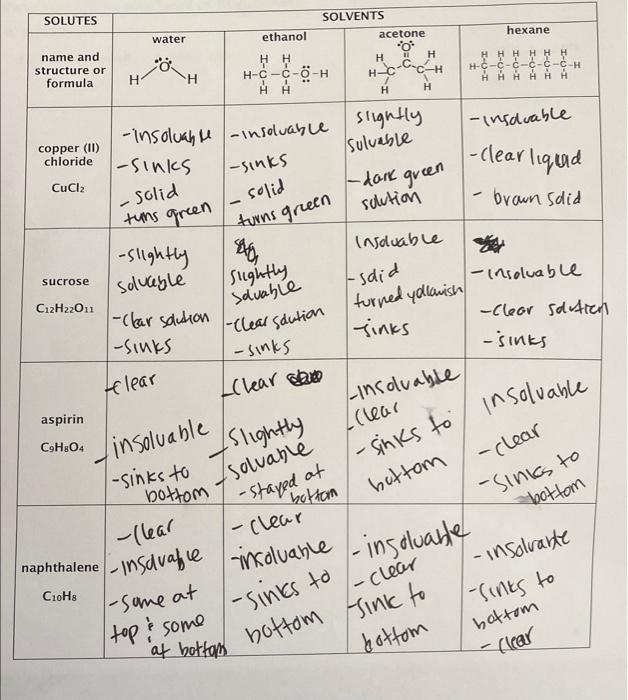 SOLUTES
SOLVENTS
name and
structure or
formula
water
H O H
ethanol
H H
H-C-C-O-H
H H
acetone
O
H H
H-C C C-H
H H
hexane
H H H H H H
H-C-C-C-C-C-C-H
H H H H H H
copper (II)
chloride
CuCl₂
-insoluable
-sinks
- solid
turns green
-insoluable
-sinks
- solid
turns green
slightly
soluable
-dark green
solution
-insoluable
-clear liquid
- brown solid
sucrose
C₁₂H₂₂O₁₁
-slightly
soluable
-clear solution
-sinks
slightly
soluable
-clear solution
-sinks
insoluable
-solid
turned yellowish
-sinks
-insoluable
-clear solution
-sinks
aspirin
C₉H₈O₄
-clear
-insoluable
-sinks to
bottom
-clear
-slightly
-soluable
-stayed at
bottom
-insoluable
-clear
-sinks to
bottom
insoluable
-clear
-sinks to
bottom
naphthalene
C₁₀H₈
-clear
-insoluable
-some at
top & some
at bottom
-clear
-insoluable
-sinks to
bottom
-insoluable
-clear
-sink to
bottom
-insoluable
-sinks to
bottom
-clear